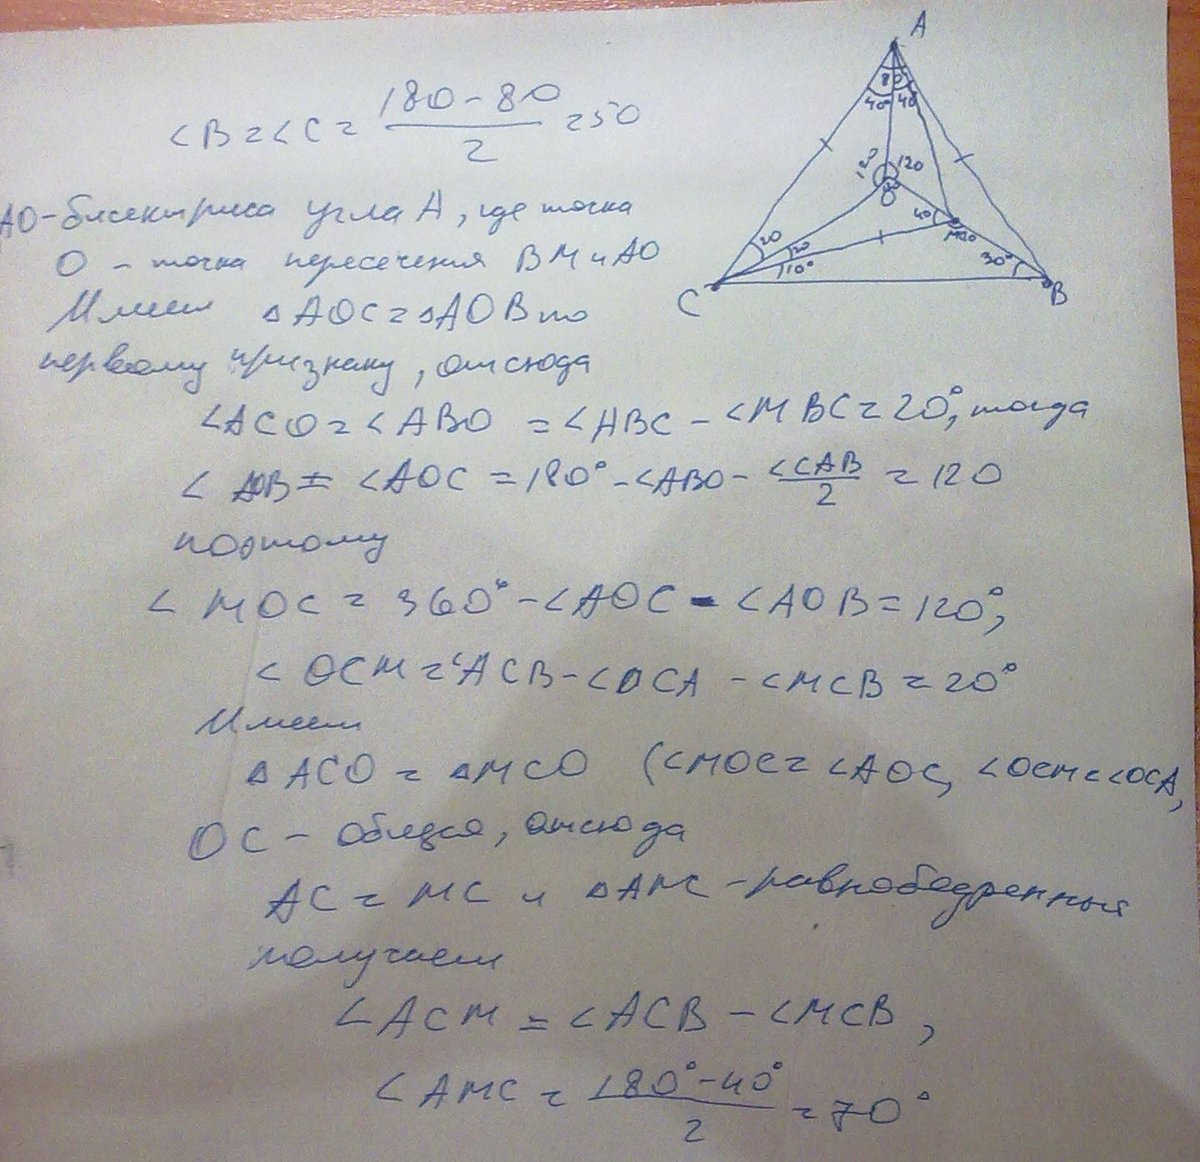 ∠B=∠C=(180-80)/2=50
AO-биссектриса угла A, где точка
O - точка пересечения BM и AO
Имеем △AOC=△AOB по
первому признаку, отсюда
∠ACO=∠ABO =∠ABC-∠MBC=20°, тогда
∠AOB=∠AOC=180°-∠ABO-∠CAB/2=120
поэтому
∠MOC=360°-∠AOC-∠AOB=120°,
∠OCM=∠ACB-∠OCA-∠MCB=20°
Имеем
△ACO=△MCO (∠MOC=∠AOC, ∠OCM=∠OCA,
OC-общая, отсюда
AC=MC и △AMC-равнобедренный
получаем
∠ACM=∠ACB-∠MCB,
∠AMC=(180°-40°)/2=70°
A
80
40° 40
120 120
O
40
M
20 20
10°
30°
C
B